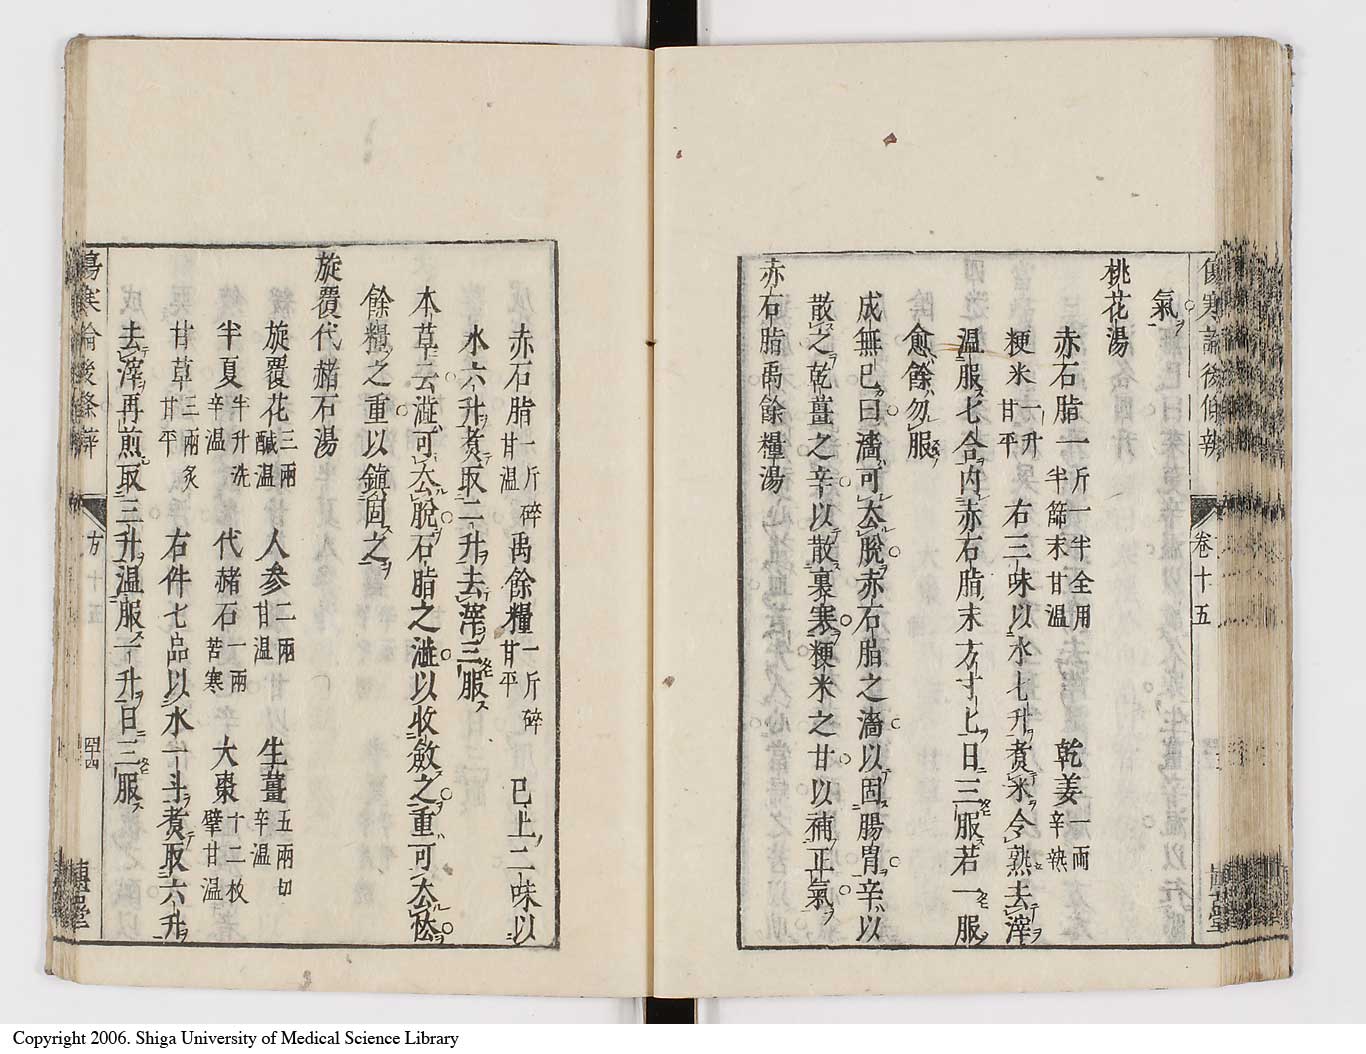 傷寒論後條辨 卷十五
氣
桃花湯
赤石脂一斤一半全用一半篩末甘温 乾姜一兩辛熱
粳米一升甘平 右三味以水七升煑米令熟去滓
温服七合内赤石脂末方寸匕日三服若一服
愈餘勿服
成無已曰濇可去脫赤石脂之濇以固腸胃辛以
散之乾薑之辛以散裏寒粳米之甘以補正氣
赤石脂禹餘糧湯
赤石脂一斤碎甘温 禹餘糧一斤碎甘平 已上二味以
水六升煑取二升去滓三服
本草云澁可去脫石脂之澁以收斂之重可去怯
餘糧之重以鎮固之
旋覆代赭石湯
旋覆花三兩鹹温 人參二兩甘温 生薑五兩切辛温
半夏半升洗辛温 代赭石一兩苦寒 大棗十二枚擘甘温
甘草三兩炙甘平 右件七品以水一斗煑取六升
去滓再煎取三升温服一升日三服
傷寒論後條辨 方十五
Copyright 2006. Shiga University of Medical Science Library